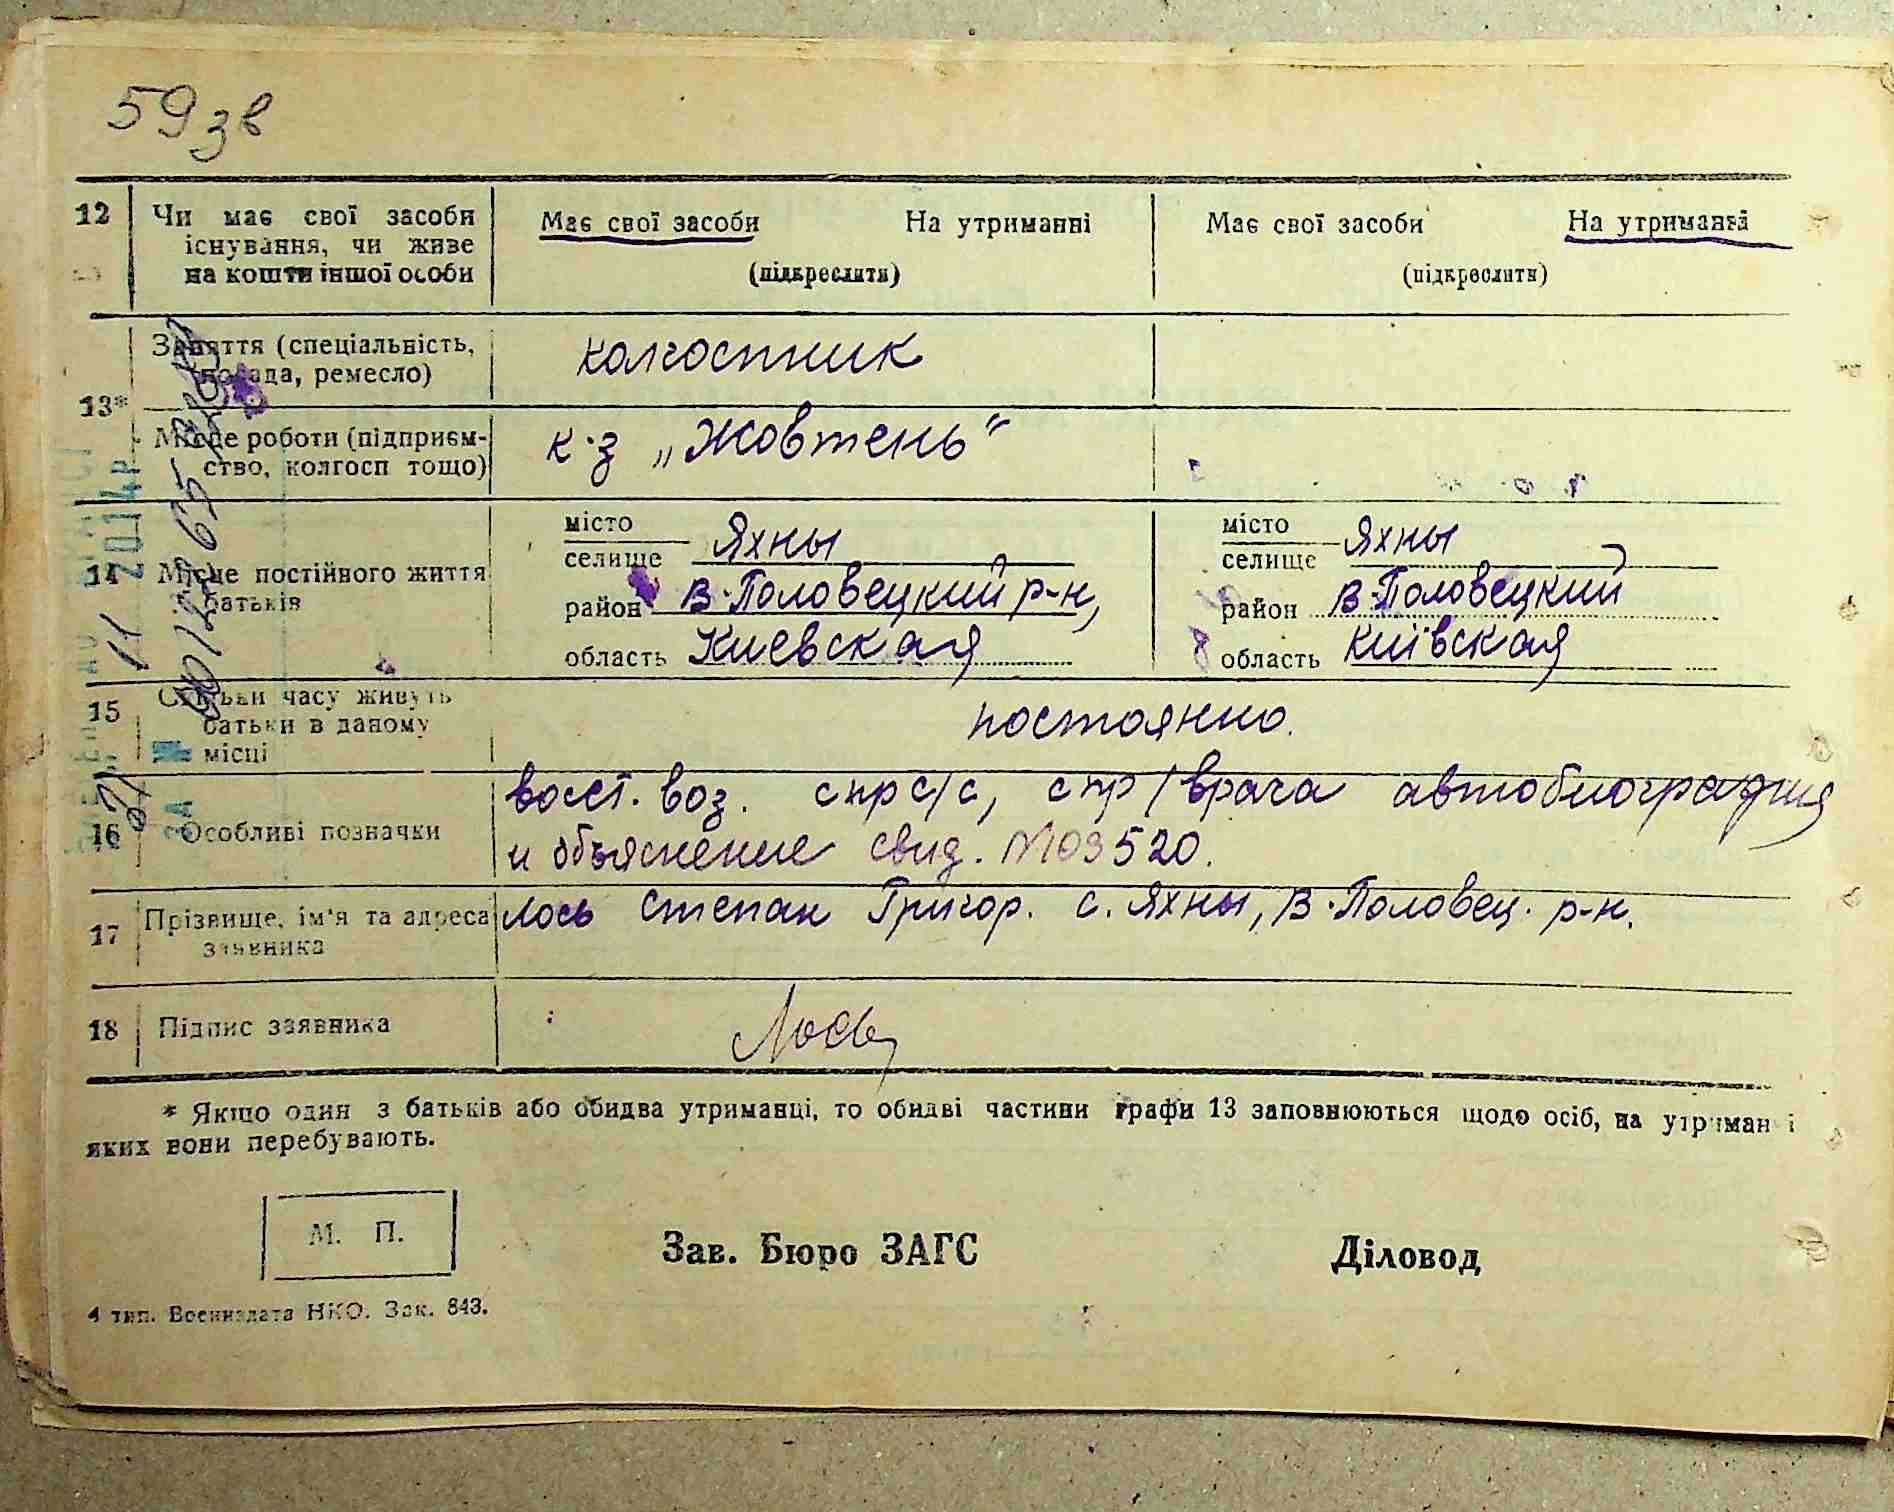 59 зв
12 Чи має свої засоби існування, чи живе на кошти іншої особи
Має свої засоби На утриманні
(підкреслити)
Має свої засоби На утриманні
(підкреслити)
13*
Заняття (спеціальність, посада, ремесло)
колгоспник
Місце роботи (підприєм-
ство, колгосп тощо)
к-з „Жовтень"
14 Місце постійного життя
батьків
місто
селище Яхны
район В-Половецкий р-н,
область Киевская
місто
селище Яхны
район В-Половецкий
область Київская
15 Скільки часу живуть
батьки в даному
місці
постоянно.
16 Особливі позначки
восст. воз. спр с/с, спр/врача автобиография
и объяснение свид. 03520.
17 Прізвище, ім'я та адреса
заявника
Лось Степан Григор. с. Яхны, В-Половец. р-н.
18 Підпис заявника
Лось
* Якщо один з батьків або обидва утриманці, то обидві частини графи 13 заповнюються щодо осіб, на утриманні
яких вони перебувають.
М. П.
Зав. Бюро ЗАГС
Діловод
4 тип. Воениздата НКО. Зак. 843.
11 2014р
ЗА №